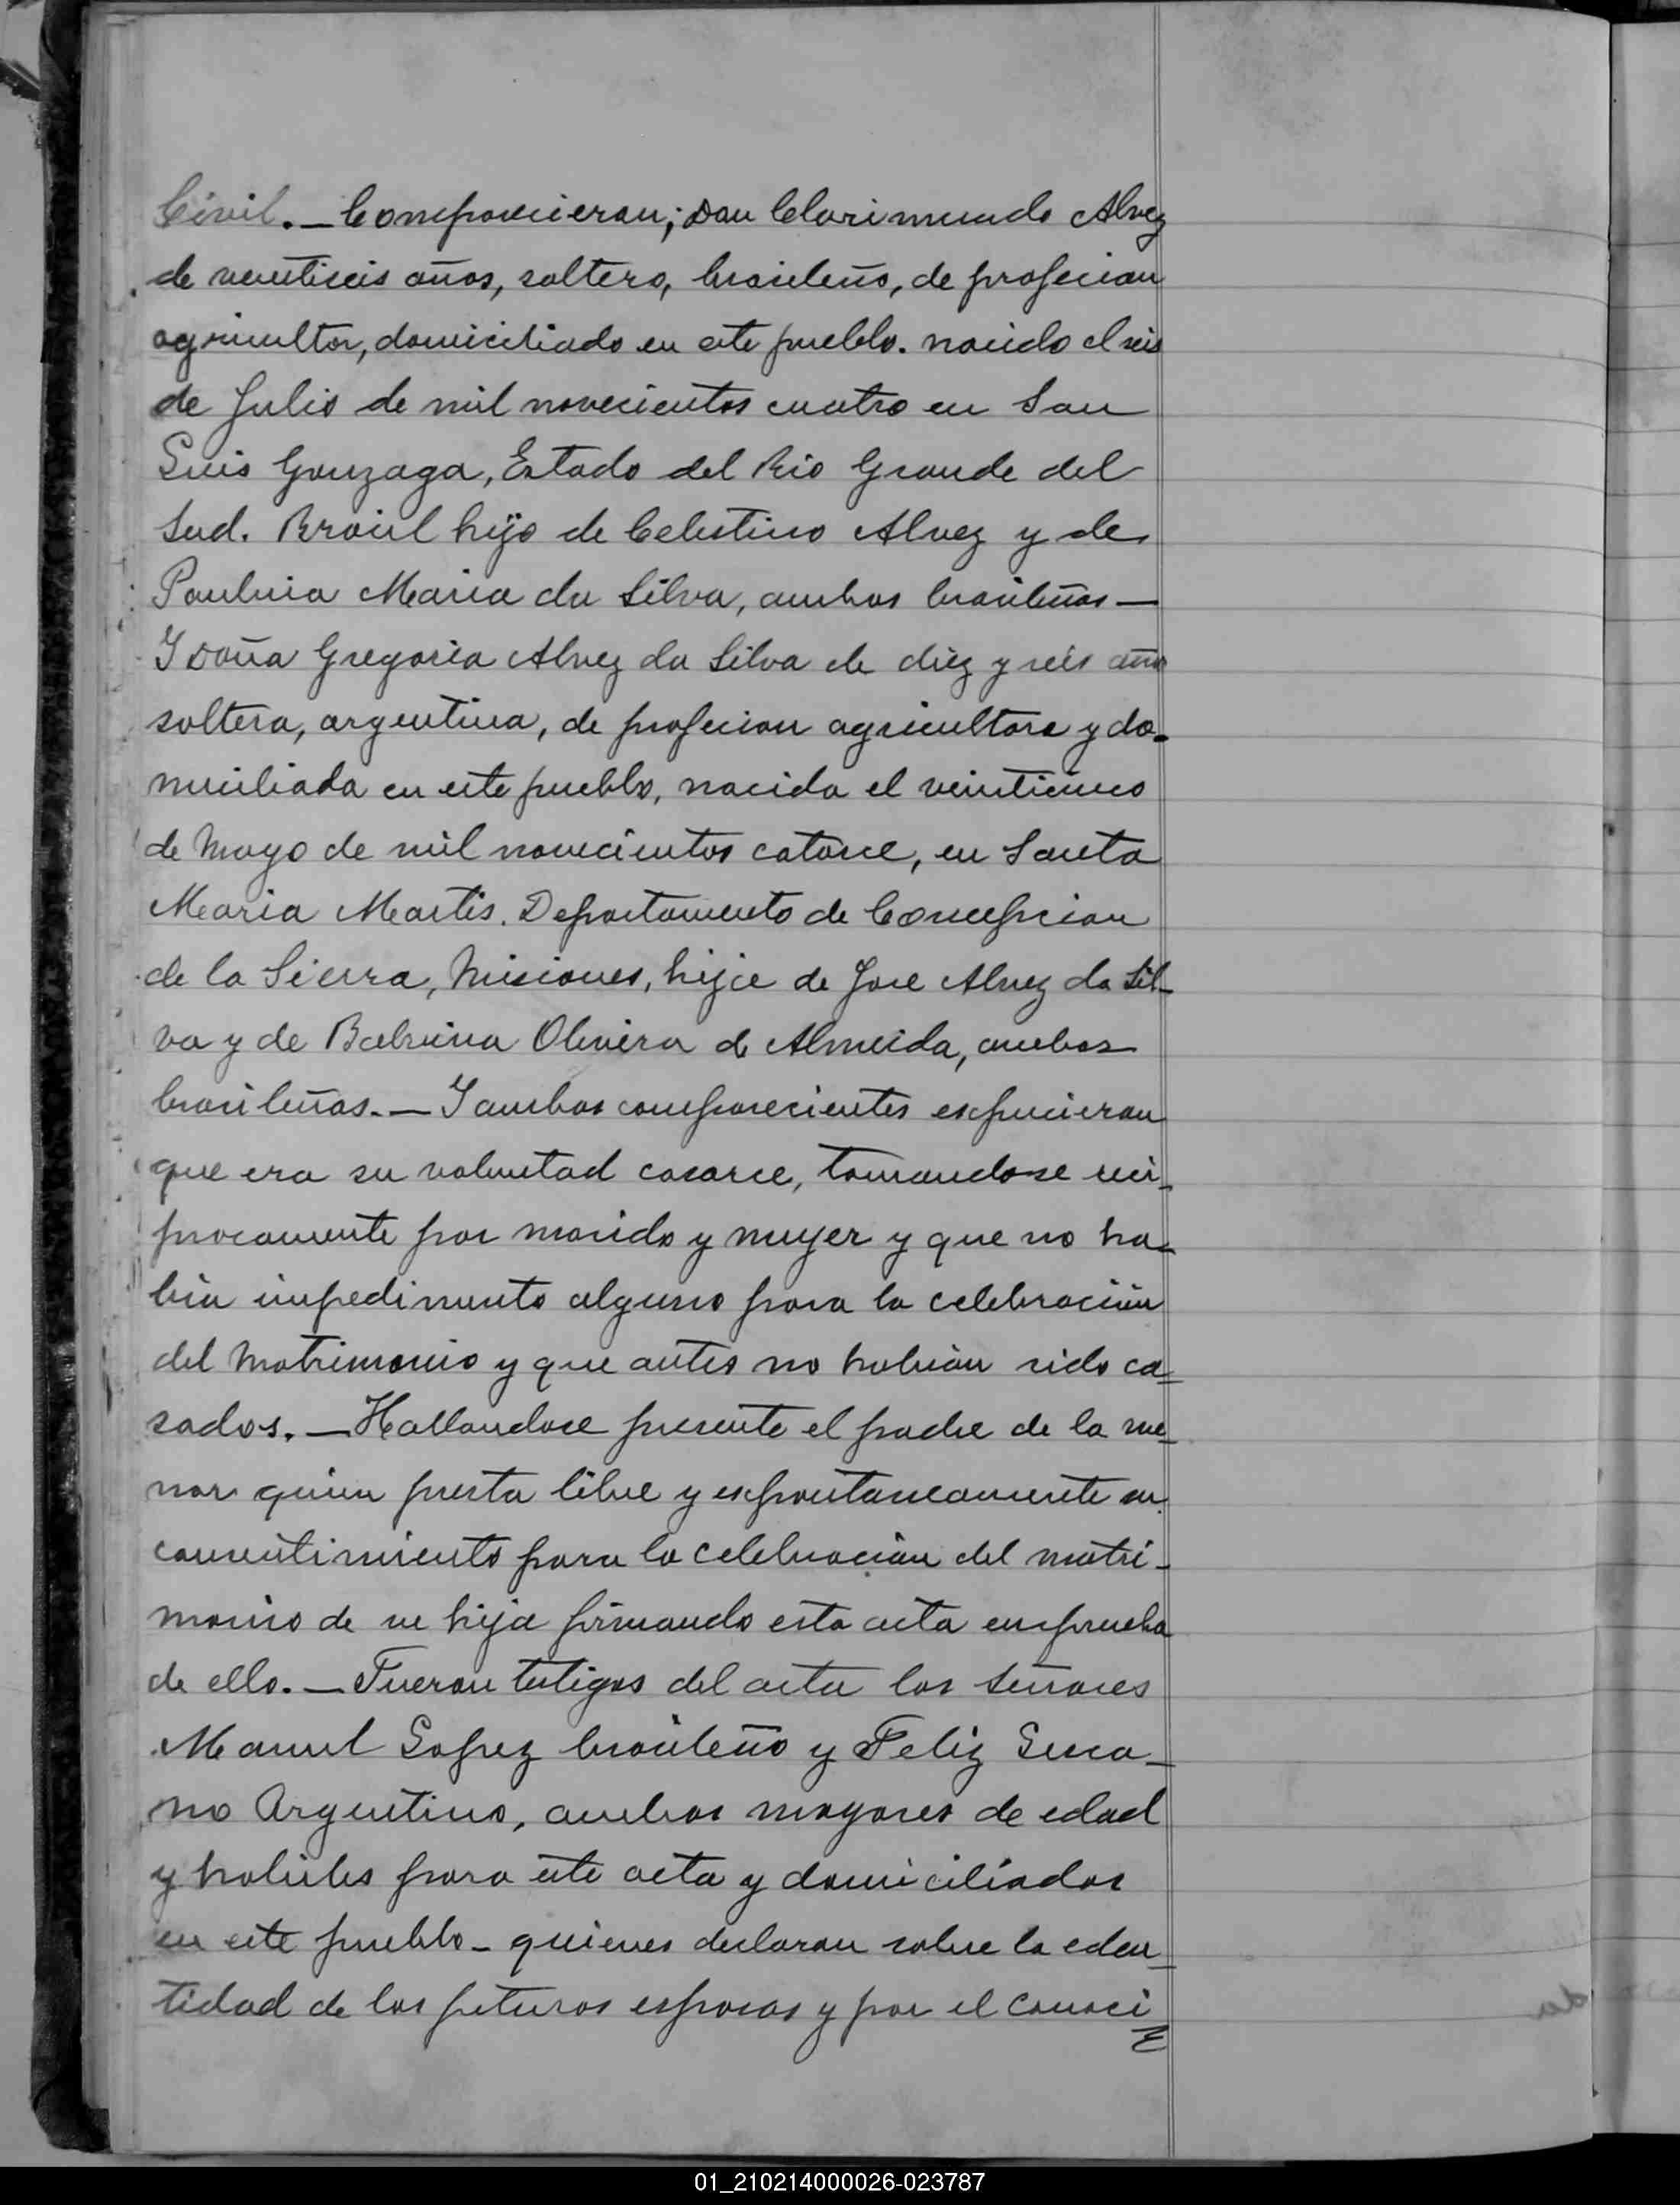 Civil. — Comparecieron; Don Clarimundo Alvez
de veintiseis años, soltero, brasileño, de profecion
agricultor, domiciliado en este pueblo. nacido el seis
de Julio de mil novecientos cuatro en San
Luis Gonzaga, Estado del Rio Grande del
Sud. Brasil hijo de Celestino Alvez y de
Paulina Maria da Silva, ambos brasileños —
Y Doña Gregoria Alvez da Silva de diez y seis años
soltera, argentina, de profecion agricultora y do-
miciliada en este pueblo, nacida el veinticinco
de Mayo de mil novecientos catorce, en Santa
Maria Martis. Departamento de Concepcion
de la Sierra, Misiones, hija de Jose Alvez da Sil-
va y de Balvina Olivera de Almeida, ambos
brasileños. — Y ambos comparecientes expucieron
que era su voluntad casarce, tomandose reci-
procamente por marido y mujer y que no ha-
bia impedimento alguno para la celebración
del Matrimonio y que antes no habian sido ca-
sados. — Hallandose presente el padre de la me-
nor quien presta libre y espontaneamente su
consentimiento para la celebracion del matri-
monio de su hija firmando esta acta en prueba
de ello. — Fueron testigos del acta los Señores
Manuel Lopez brasileño y Feliz
no Argentino, ambos mayores de edad
y habiles para este acta y domiciliados
en este pueblo - quienes declaran sobre la eden-
tidad de los futuros esposos y por el conoci
01_210214000026-023787